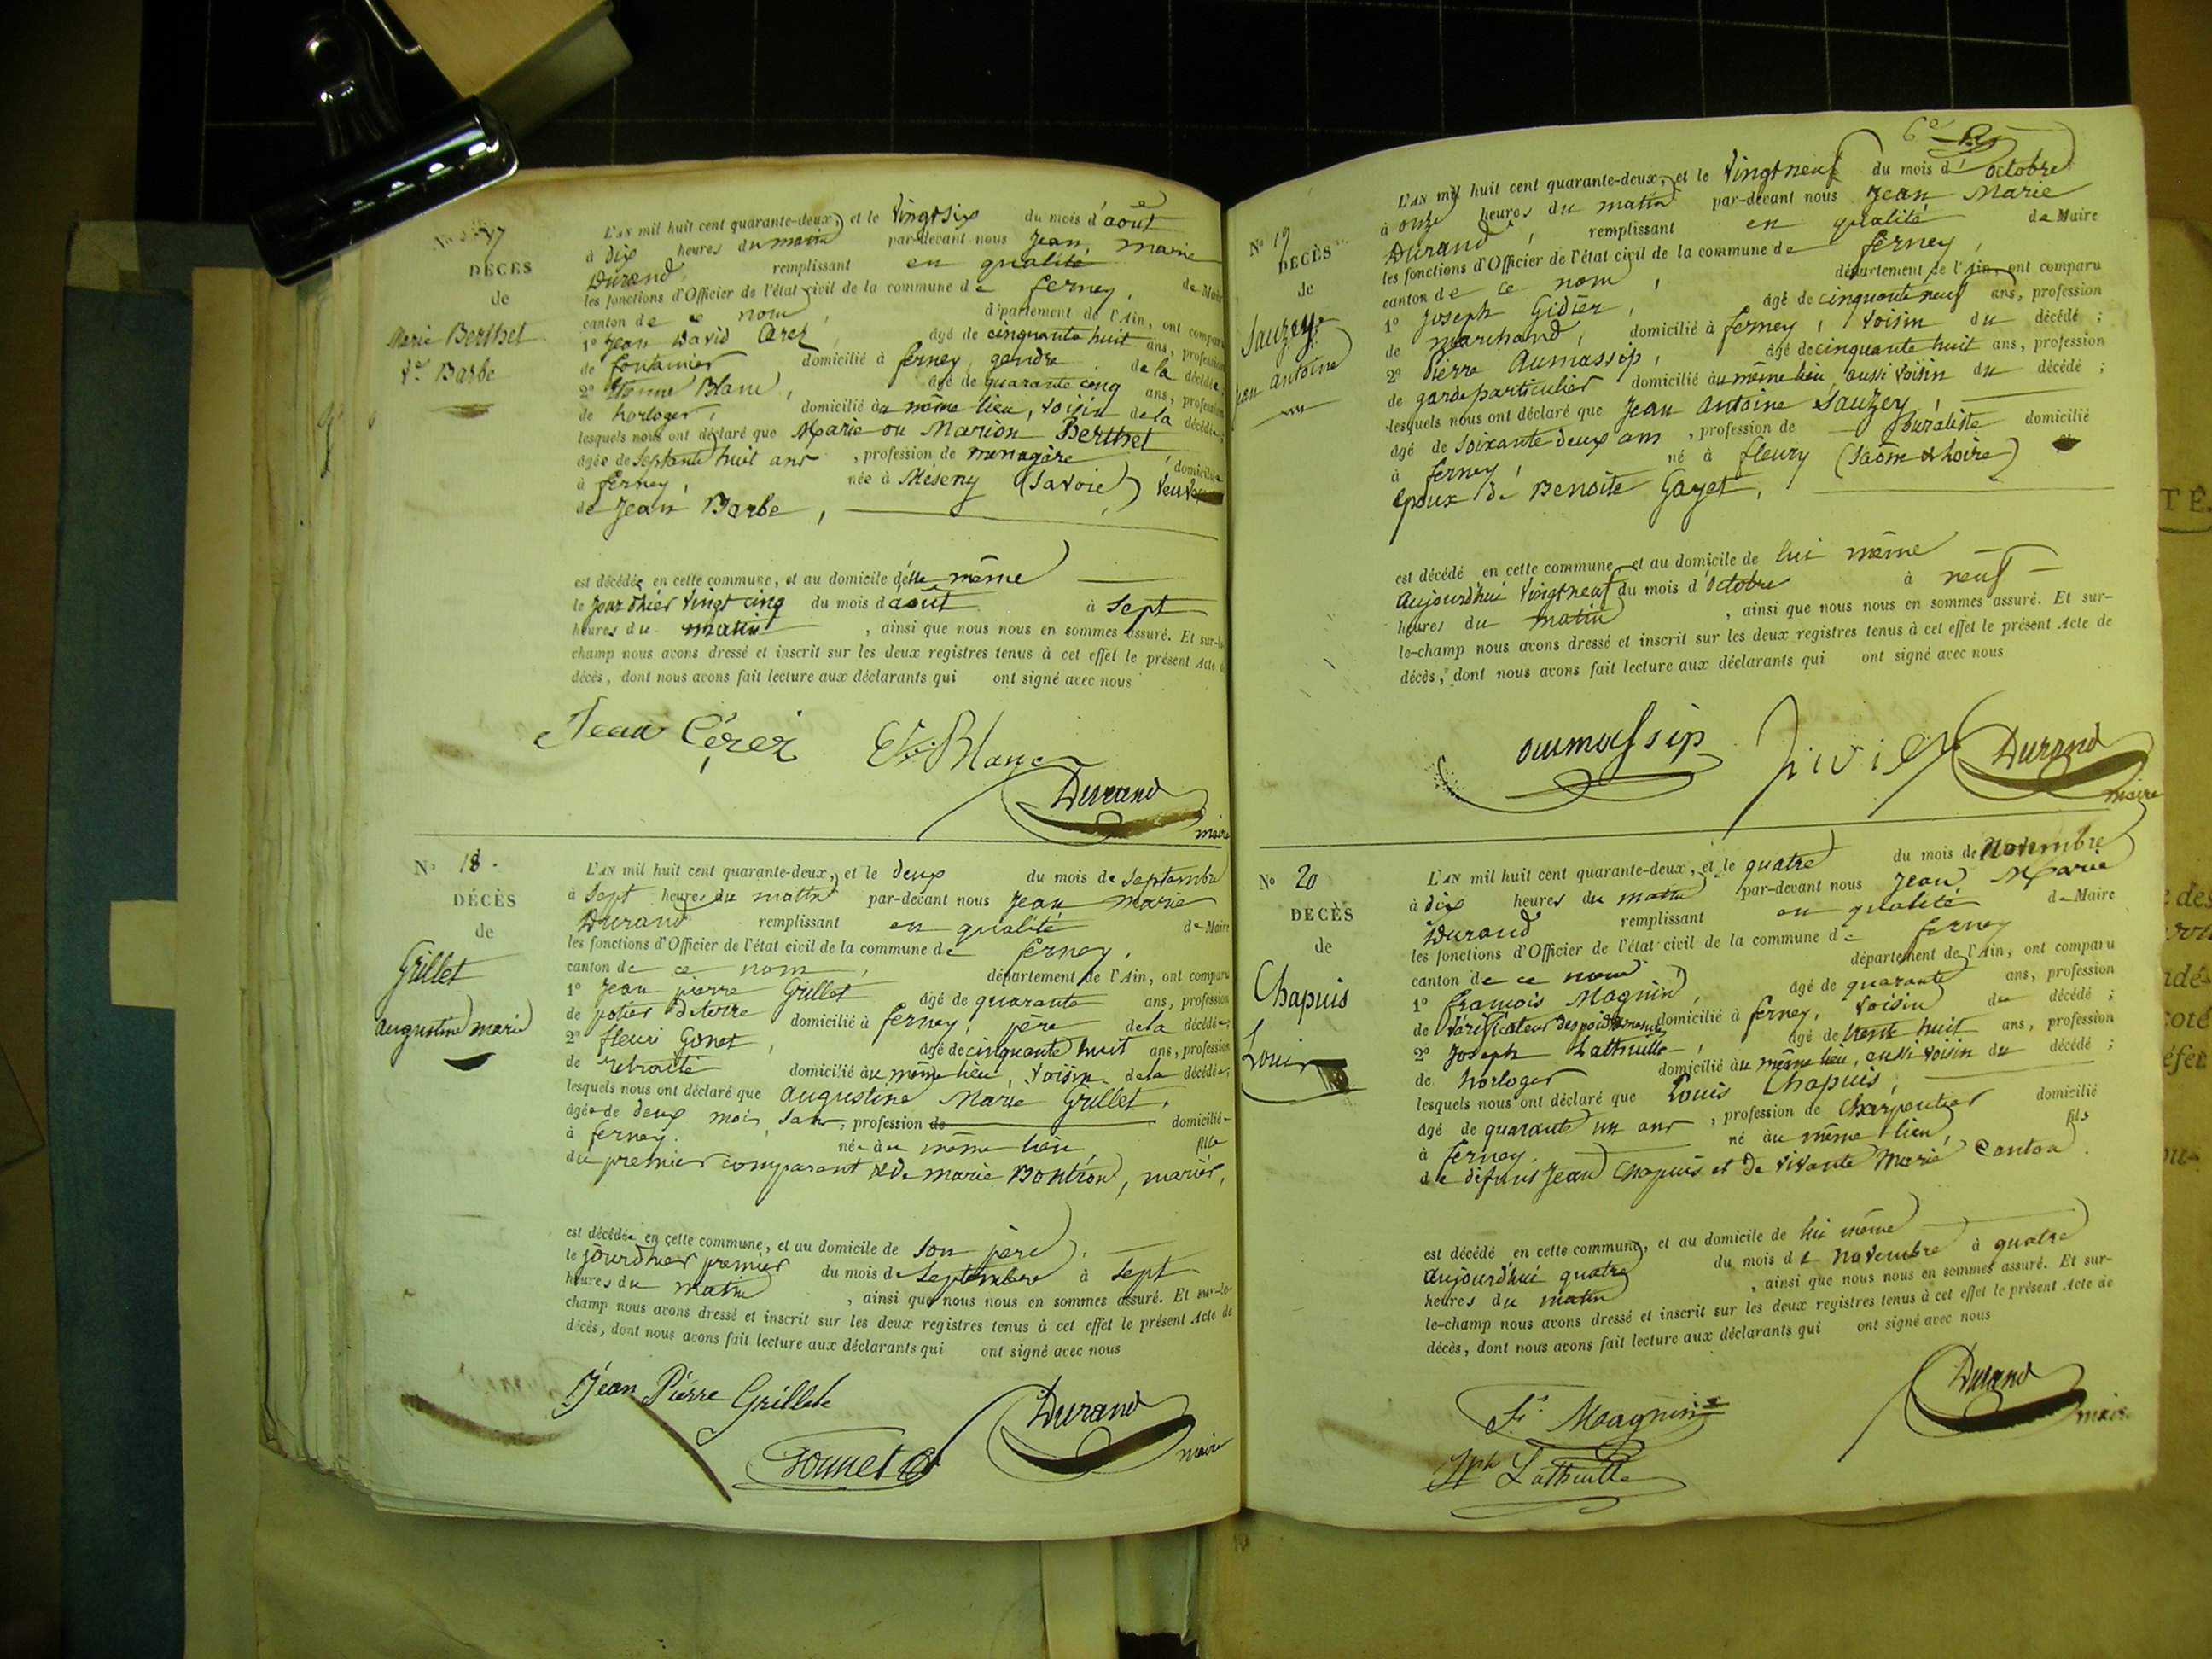 No 17
DÉCÈS
de
Marie Berthet
Ve Barbe
L'AN mil huit cent quarante-deux, et le Vingt six du mois d'août
à dix heures du matin par-devant nous Jean, marie
Durand remplissant en qualité de Maire
les fonctions d'Officier de l'état civil de la commune de ferney,
canton de ce nom, département de l'Ain, ont comparu
1° Jean David Cerez, âgé de cinquante huit ans, profession
de fontainier domicilié à ferney, gendre de la décédée;
2° Etienne Blanc, âgé de quarante cinq ans, profession
de horloger, domicilié au même lieu, voisin de la décédée;
lesquels nous ont déclaré que Marie ou Marion Berthet
âgée de septante huit ans, profession de menagère, domiciliée
à ferney, née à Méseny (Savoie) veuve
de Jean Barbe,
est décédée en cette commune, et au domicile d'elle même
le jour d'hier vingt cinq du mois d'août à sept
heures du matin, ainsi que nous nous en sommes assuré. Et sur-le-
champ nous avons dressé et inscrit sur les deux registres tenus à cet effet le présent Acte de
décès, dont nous avons fait lecture aux déclarants qui ont signé avec nous
Jean Cérez Et. Blanc
Durand
maire
No 18.
DÉCÈS
de
Grillet
augustine marie
L'AN mil huit cent quarante-deux, et le deux du mois de septembre
à sept heures du matin par-devant nous Jean marie
Durand remplissant en qualité de Maire
les fonctions d'Officier de l'état civil de la commune de ferney,
canton de ce nom, département de l'Ain, ont comparu
1° Jean pierre Grillet âgé de quarante ans, profession
de potier de terre domicilié à ferney, père de la décédée;
2° fleuri Gonet, âgé de cinquante huit ans, profession
de retraité domicilié au même lieu, voisin de la décédée;
lesquels nous ont déclaré que augustine Marie Grillet,
âgée de deux mois, sans, profession de domiciliée
à ferney. née au même lieu, fille
du premier comparant & de marie Bontron, mariés,
est décédée en cette commune, et au domicile de son père,
le jour d'hier premier du mois de septembre à sept
heures du matin, ainsi que nous nous en sommes assuré. Et sur-le-
champ nous avons dressé et inscrit sur les deux registres tenus à cet effet le présent Acte de
décès, dont nous avons fait lecture aux déclarants qui ont signé avec nous
Jean Pierre Grillet
Gonnet
Durand
maire
6e
No 19
DÉCÈS
de
Sauzey
jean antoine
L'AN mil huit cent quarante-deux, et le vingt neuf du mois d'octobre
à onze heures du matin par-devant nous Jean Marie
Durand, remplissant en qualité de Maire
les fonctions d'Officier de l'état civil de la commune de ferney,
canton de ce nom, département de l'Ain, ont comparu
1° Joseph Gidier, âgé de cinquante neuf ans, profession
de marchand, domicilié à ferney, voisin du décédé;
2° Pierre Aumassip, âgé de cinquante huit ans, profession
de garde particulier domicilié au même lieu, aussi voisin du décédé;
lesquels nous ont déclaré que Jean Antoine Sauzey,
âgé de soixante deux ans, profession de Journaliste domicilié
à ferney, né à fleury (Saône & Loire)
époux de Benoite Gayet,
est décédé en cette commune, et au domicile de lui même
aujourd'hui vingt neuf du mois d'octobre à neuf
heures du matin, ainsi que nous nous en sommes assuré. Et sur-
le-champ nous avons dressé et inscrit sur les deux registres tenus à cet effet le présent Acte de
décès, dont nous avons fait lecture aux déclarants qui ont signé avec nous
aumassip
Durand
maire
No 20
DÉCÈS
de
Chapuis
Louis
L'AN mil huit cent quarante-deux, et le quatre du mois de Novembre
à dix heures du matin par-devant nous Jean Marie
Durand remplissant en qualité de Maire
les fonctions d'Officier de l'état civil de la commune de ferney
canton de ce nom, département de l'Ain, ont comparu
1° françois Magnin, âgé de quarante ans, profession
de Vérificateur des poids & mesures domicilié à ferney, voisin du décédé;
2° Joseph Lathuille, âgé de trente huit ans, profession
de horloger domicilié au même lieu, aussi voisin du décédé;
lesquels nous ont déclaré que Louis Chapuis,
âgé de quarante un ans, profession de Charpentier domicilié
à ferney. né au même lieu, fils
de défunt Jean Chapuis et de vivante Marie Canton.
est décédé en cette commune, et au domicile de lui même
aujourd'hui quatre du mois de novembre à quatre
heures du matin, ainsi que nous nous en sommes assuré. Et sur-
le-champ nous avons dressé et inscrit sur les deux registres tenus à cet effet le présent Acte de
décès, dont nous avons fait lecture aux déclarants qui ont signé avec nous
Fs Magnin
Jph Lathuille
Durand
maire